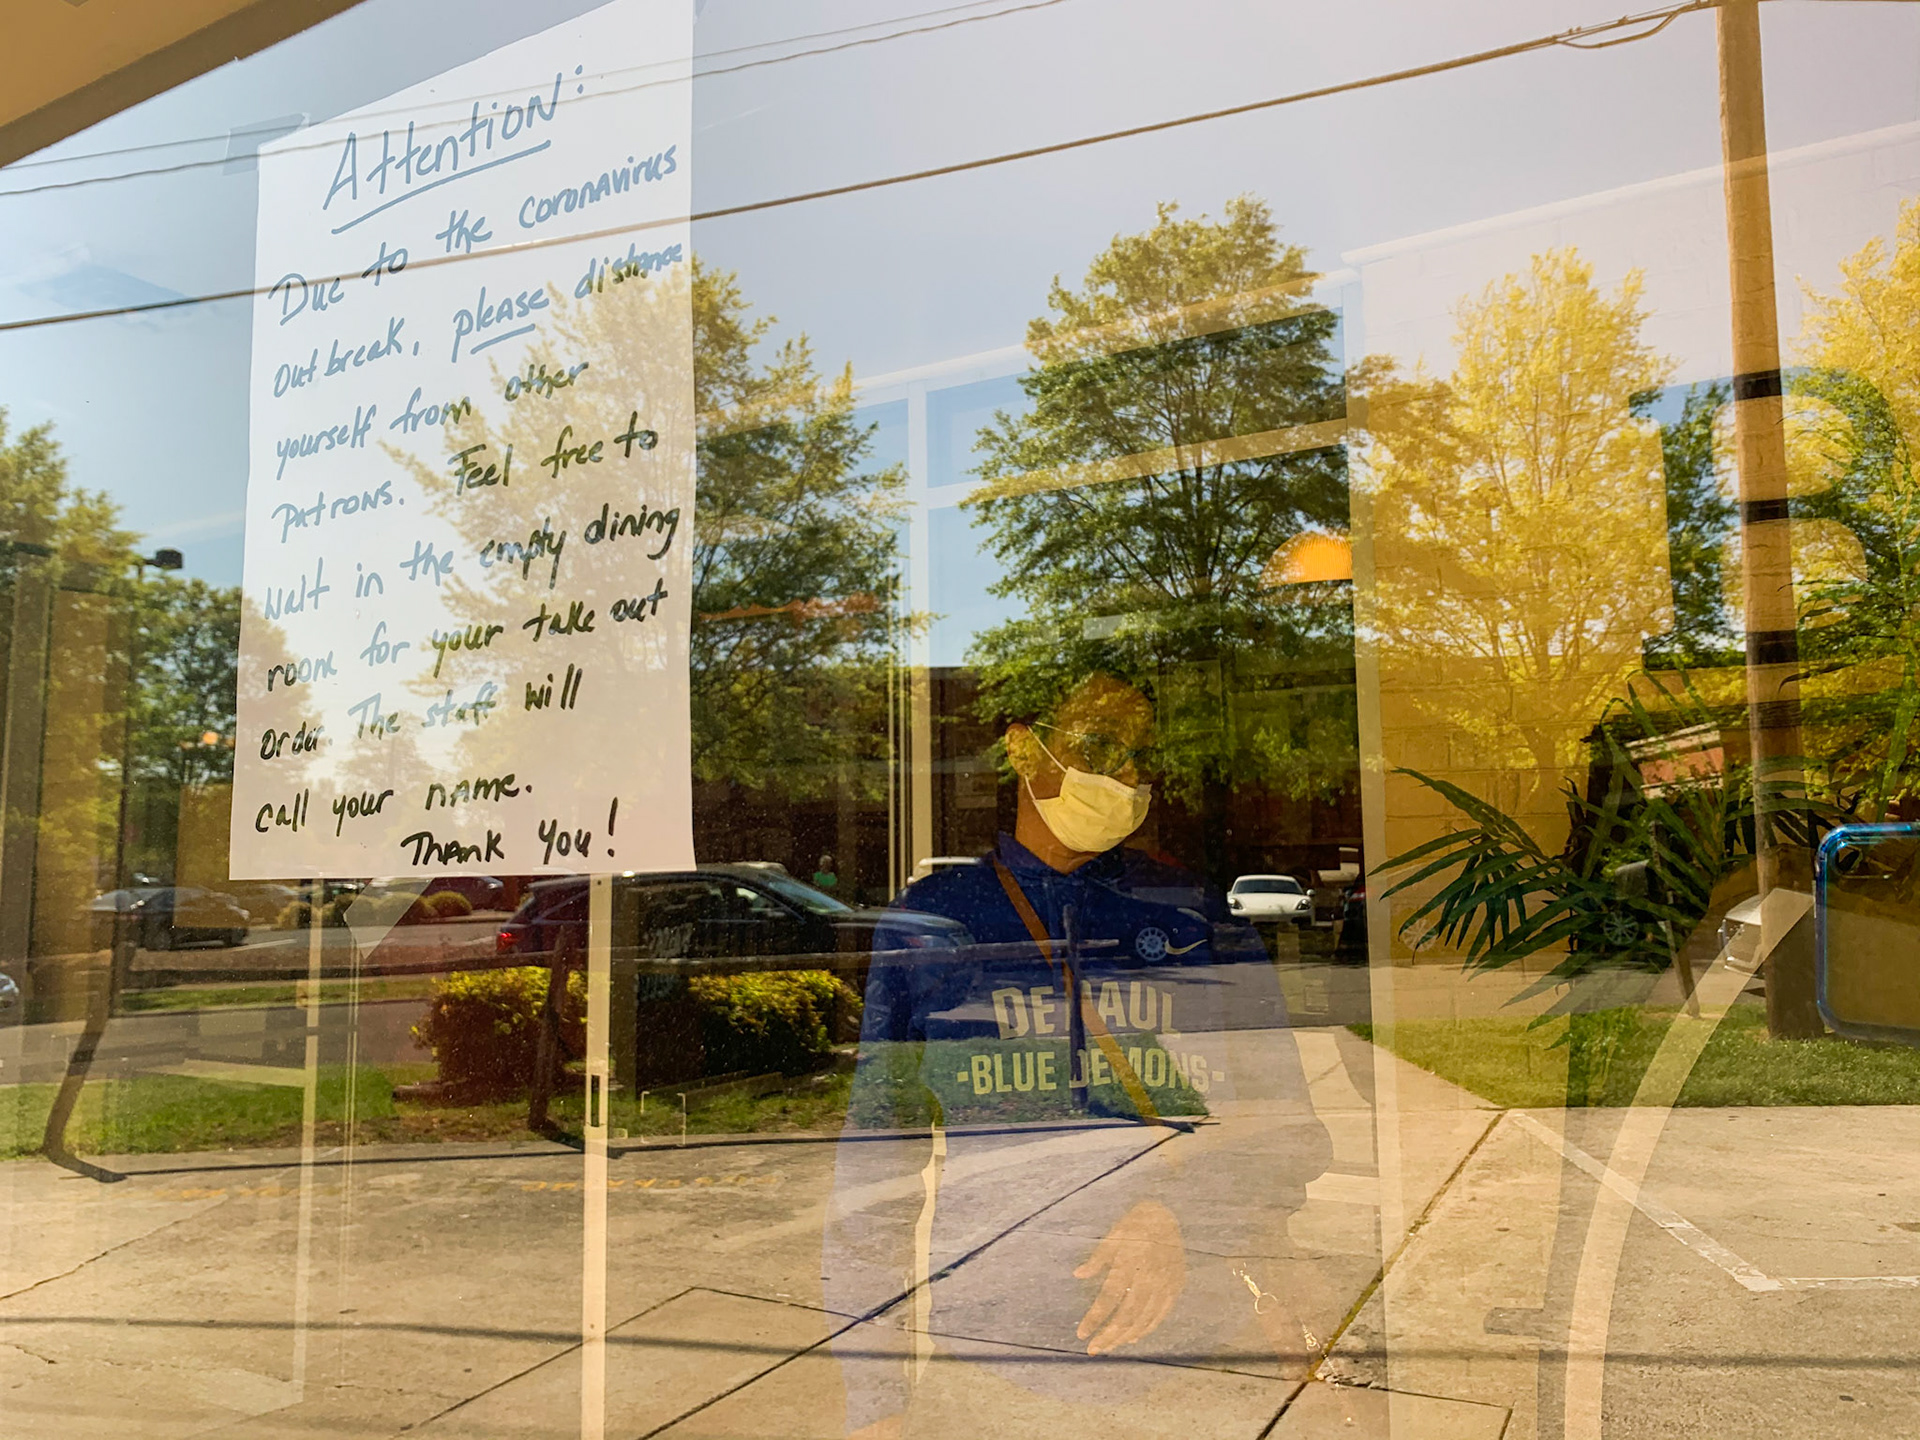 Attention:
Due to the coronavirus
outbreak, please distance
yourself from other
patrons. Feel free to
wait in the empty dining
room for your take out
order. The staff will
call your name.
Thank you!
DEPAUL
-BLUE DEMONS-